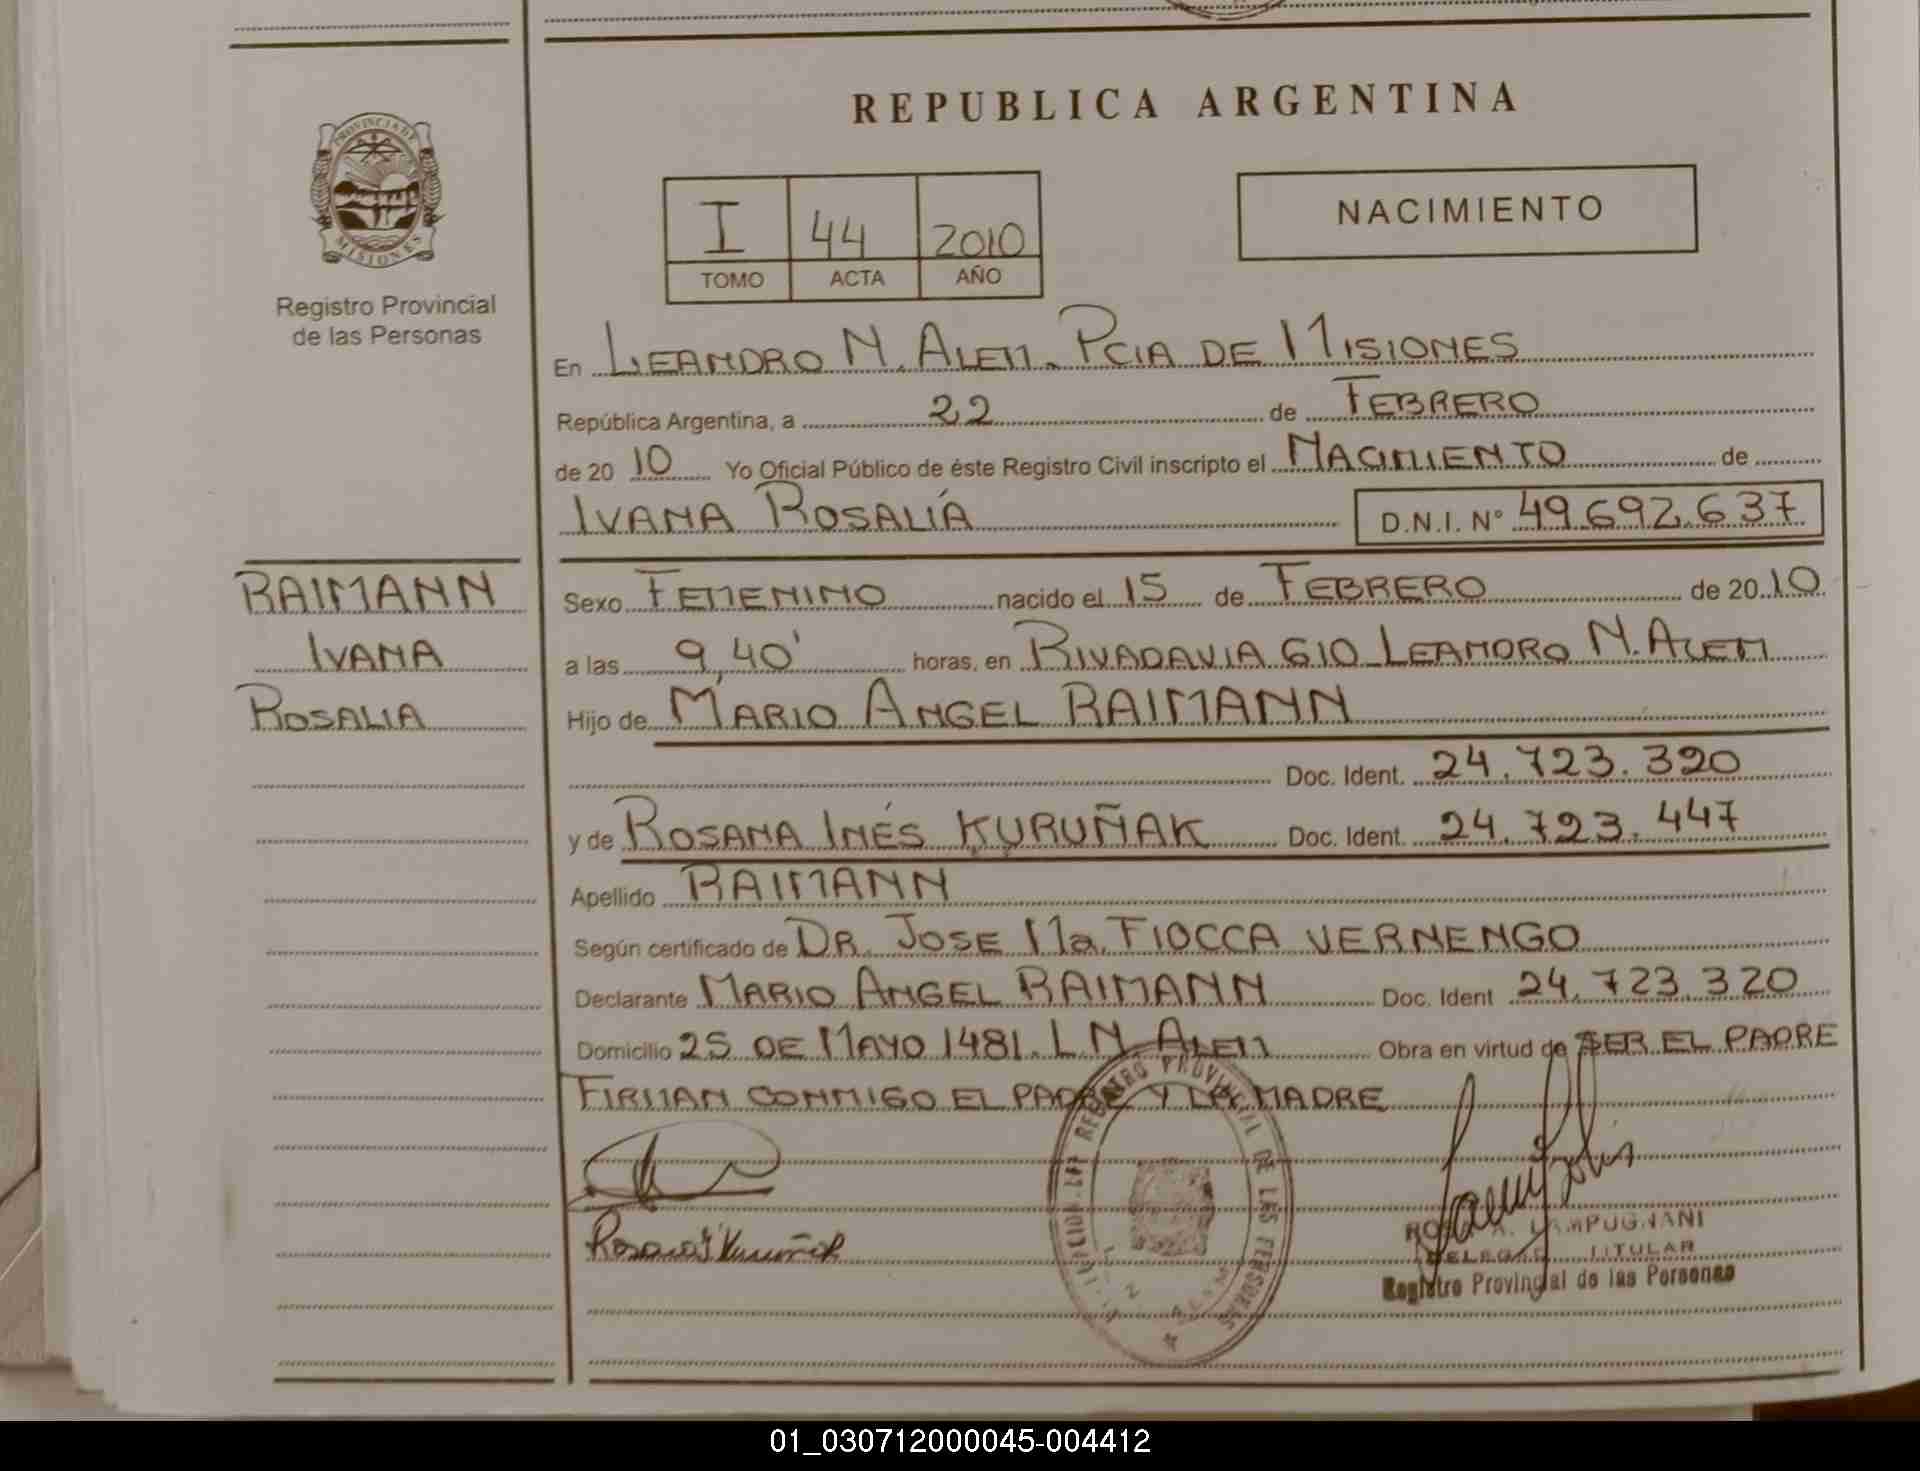 REPUBLICA ARGENTINA
PROVINCIA DE
MISIONES
Registro Provincial
de las Personas
I 44 2010
TOMO ACTA AÑO
NACIMIENTO
En LEANDRO N. ALEM. PCIA DE MISIONES
República Argentina, a 22 de FEBRERO
de 20 10 Yo Oficial Público de éste Registro Civil inscripto el NACIMIENTO de
IVANA ROSALÍA D.N.I. N° 49.692.637
RAIMANN
IVANA
ROSALIA
Sexo FEMENINO nacido el 15 de FEBRERO de 20 10
a las 9,40' horas, en RIVADAVIA 610 LEANDRO N. ALEM
Hijo de MARIO ANGEL RAIMANN
Doc. Ident. 24.723.320
y de ROSANA INÉS KURUÑAK Doc. Ident. 24.723.447
Apellido RAIMANN
Según certificado de DR. JOSE Ma. FIOCCA VERNENGO
Declarante MARIO ANGEL RAIMANN Doc. Ident 24.723.320
Domicilio 25 DE MAYO 1481. L N. ALEM Obra en virtud de SER EL PADRE
FIRMAN CONMIGO EL PADRE Y LA MADRE
REGISTRO PROVINCIAL DE LAS PERSONAS
LAMPUGNANI
TITULAR
Registro Provincial de las Personas
01_030712000045-004412